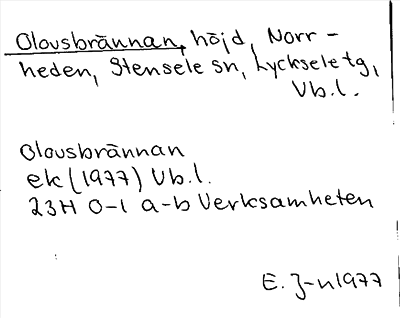 Olovsbrännan, höjd, Norr-
heden, Stensele sn, Lycksele tg,
Vb.l.
Olovsbrännan
ek (1977) Vb.l.
23H 0-1 a-b Verksamheten
E. J-n 1977